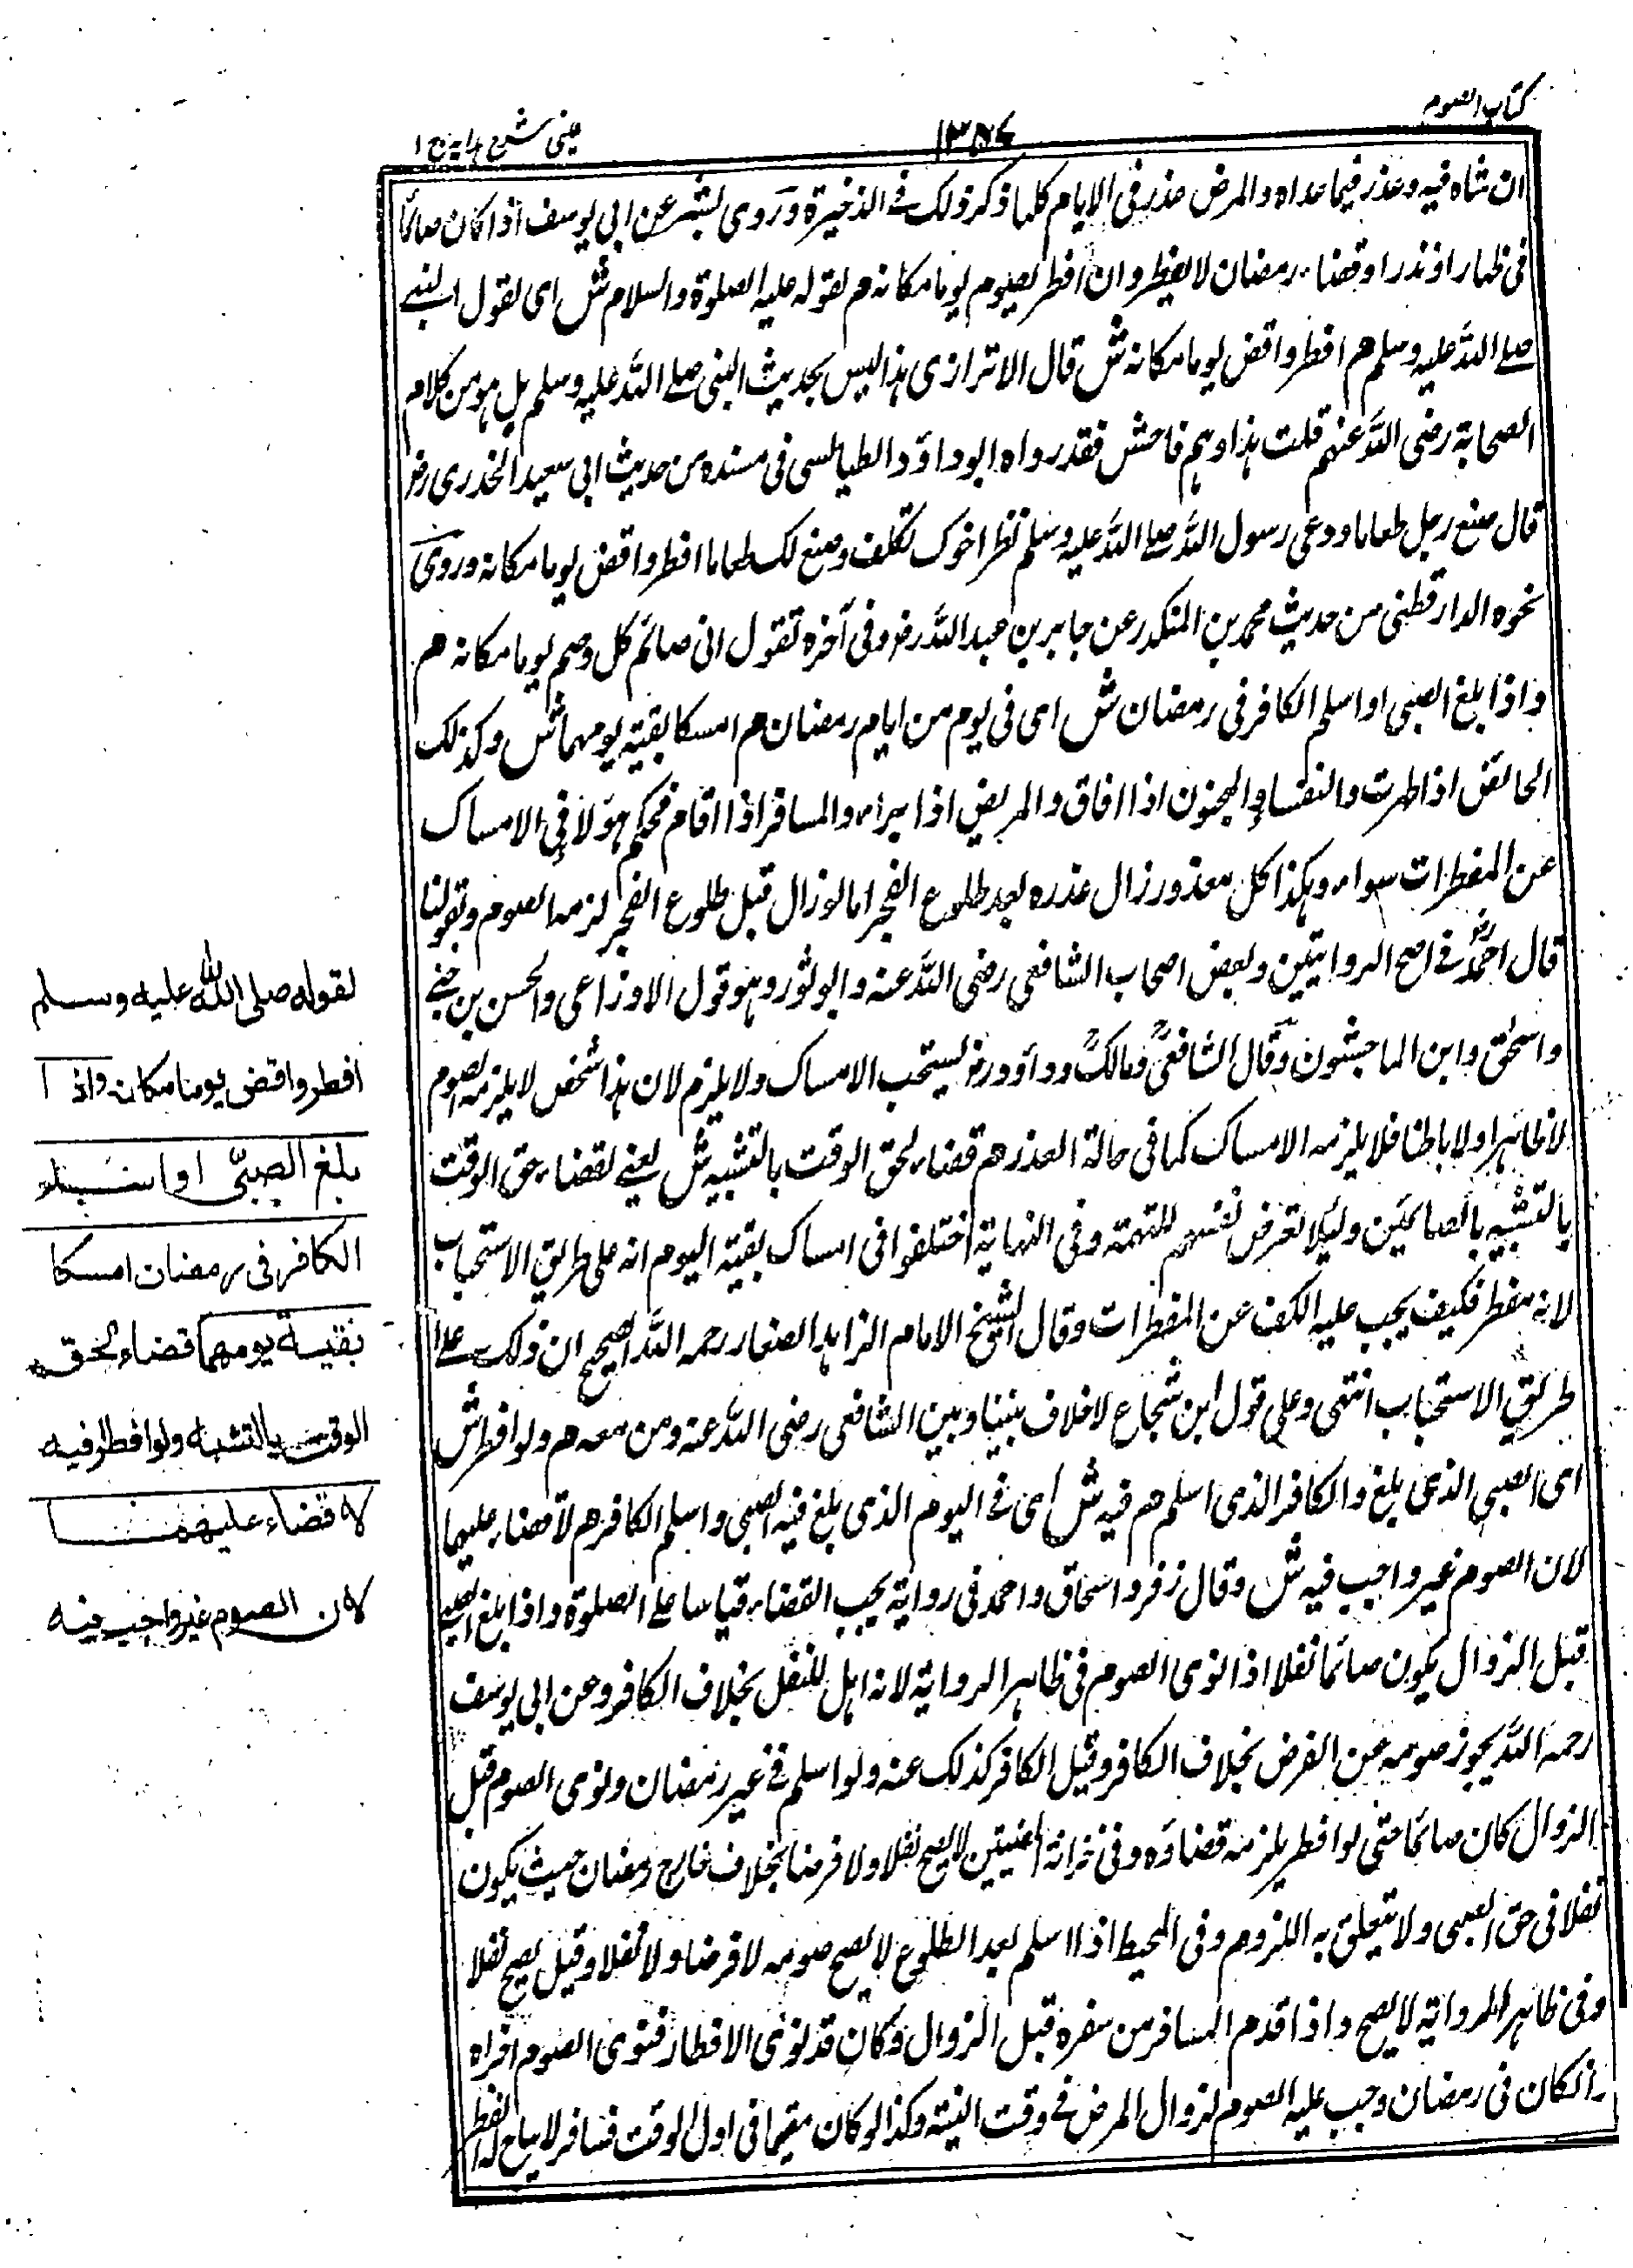 كتاب الصوم
١٣٥٤
عينى شرح هدايه ج ١
ان شاه فيه وعذر فيما عداه والمرض عذر فى الايام كلها ذكر ذلك فے الذخيرة وروى بشر عن ابى يوسف اذا كان صائما
فى ظهار او نذر او قضاء رمضان لا يفطر وان افطر يصوم يوما مكانه هم لقوله عليه الصلوة والسلام ش اى لقول النبے
صلے الله عليه وسلم هم افطر واقض يوما مكانه ش قال الاترازى هذا ليس بحديث النبى صلے الله عليه وسلم بل هو من كلام
الصحابة رضى الله عنهم قلت هذا وهم فاحش فقد رواه ابو داؤد الطيالسى فى مسنده من حديث ابى سعيد الخدرى رض
قال صنع رجل طعاما ودعى رسول الله صلے الله عليه وسلم نظر اخوك تكلف وصنع لك طعاما افطر واقض يوما مكانه وروى
نحوه الدارقطنى من حديث محمد بن المنكدر عن جابر بن عبد الله رض وفى آخره تقول انى صائم كل وصم يوما مكانه هم
واذا بلغ الصبى او اسلم الكافر فى رمضان ش اى فى يوم من ايام رمضان هم امسكا بقية يومهما ش وكذلك
الحائض اذا طهرت والنفساء والمجنون اذا افاق والمريض اذا براء والمسافر اذا اقام فحكم هؤلاء فى الامساك
عن المفطرات سواء وهكذا كل معذور زال عذره بعد طلوع الفجر اما لو زال قبل طلوع الفجر لزمه الصوم وبقولنا
قال احمد رض فے اصح الروايتين وبعض اصحاب الشافعى رضى الله عنه وابو ثور وهو قول الاوزاعى والحسن بن حے
واسحق وابن الماجشون وقال الشافعى ومالك وداؤد رض يستحب الامساك ولا يلزم لان هذا شخص لا يلزمه الصوم
لا ظاهرا ولا باطنا فلا يلزمه الامساك كما فى حالة العذر هم قضاء لحق الوقت بالتشبيه ش يعنے لقضاء حق الوقت
بالتشبيه بالصائمين ولئلا تعرض نفسهم للتهمة وفى النهاية اختلفوا فى امساك بقية اليوم انه على طريق الاستحباب
لانه مفطر فكيف يجب عليه الكف عن المفطرات وقال الشيخ الامام الزاهد الصفار رحمه الله الصحيح ان ذلك علے
طريق الاستحباب انتهى وعلى قول ابن شجاع لا خلاف بيننا وبين الشافعى رضى الله عنه ومن معه هم ولو افطرا ش
اى الصبى الذى بلغ والكافر الذى اسلم هم فيه ش اى فے اليوم الذى بلغ فيه الصبى واسلم الكافر هم لا قضاء عليهما
لان الصوم غير واجب فيه ش وقال زفر واسحاق واحمد فى رواية يجب القضاء قياسا علے الصلوة واذا بلغ الصبے
قبل الزوال يكون صائما نفلا اذا نوى الصوم فى ظاهر الرواية لانه اهل للنفل بخلاف الكافر وعن ابى يوسف
رحمه الله يجوز صومه عن الفرض بخلاف الكافر وقيل الكافر كذلك عنه ولو اسلم فے غير رمضان ونوى الصوم قبل
الزوال كان صائما حتى لو افطر يلزمه قضاؤه وفى خزانة المفتيين لا يصح نفلا ولا فرضا بخلاف خارج رمضان حيث يكون
نفلا فى حق الصبى ولا يتعلق به اللزوم وفى المحيط اذا اسلم بعد الطلوع لا يصح صومه لا فرضا ولا نفلا وقيل يصح نفلا
وفى ظاهر الرواية لا يصح واذا قدم المسافر من سفره قبل الزوال وكان قد نوى الافطار فنوى الصوم اجزاه
وان كان فى رمضان وجب عليه الصوم لزوال المرض فے وقت النية وكذا لو كان مقيما فى اول الوقت فسافر لا يباح له الفطر
لقوله صلى الله عليه وسلم
افطر واقض يوما مكانه واذا
بلغ الصبى او اسلم
الكافر فى رمضان امسكا
بقية يومهما قضاء لحق
الوقت بالتشبه ولو افطرا فيه
لا قضاء عليهما
لان الصوم غير واجب فيه